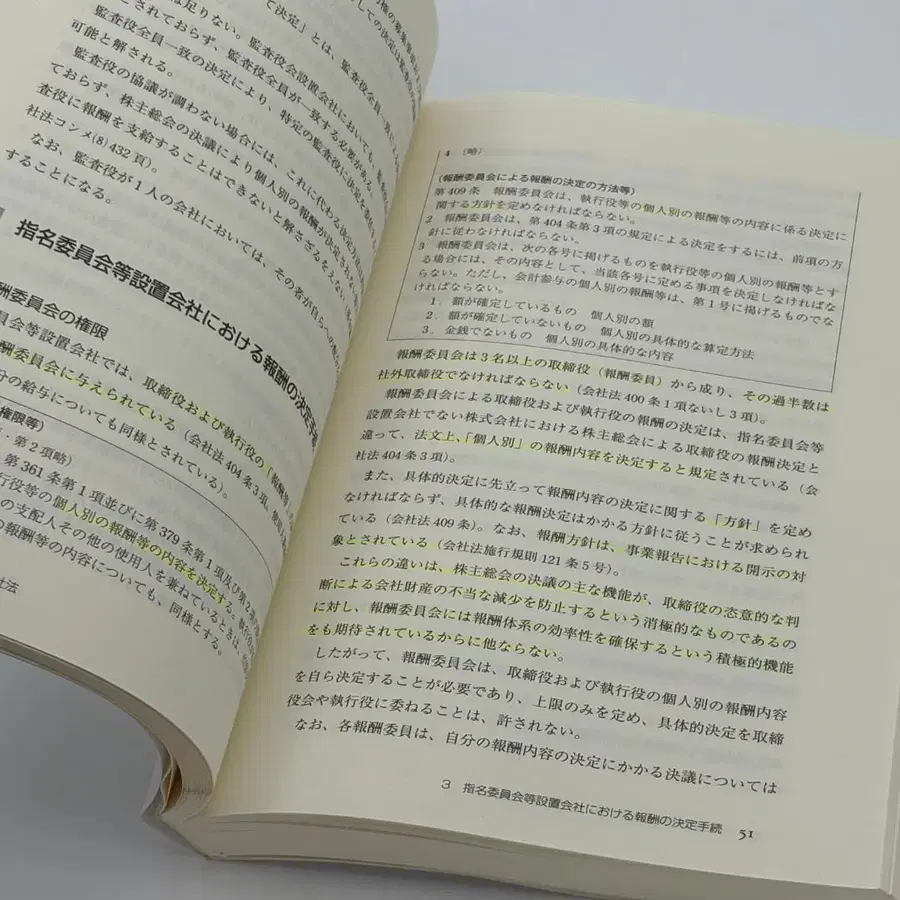 は足りない。監査役会設置会社においても、
されておらず、監査役全員が一致する必要がある。
監査役全員一致の決定により、特定の監査役に決定を
可能と解される。
監査役の協議が調わない場合には、これに代わる決定方法は
ておらず、株主総会の決議により個人別の報酬が決定されな
査役に報酬を支給することはできないと解さざるをえない
社法コンメ(8)432頁)。
なお、監査役が1人の会社においては、その者が自らへの配
することになる。
指名委員会等設置会社における報酬の決定手続
酬委員会の権限
員会等設置会社では、取締役および執行役の
酬委員会に与えられている(会社法404条3項、
分の給与についても同様とされている)。
権限等)
・第2項略)
第361条第1項並びに第379条第1項及び第2項
行役等の個人別の報酬等の内容を決定する。
の支配人その他の使用人を兼ねているときは、
の報酬等の内容についても、同様とする。
社法
4 (略)
(報酬委員会による報酬の決定の方法等)
第409条 報酬委員会は、執行役等の個人別の報酬等の内容に係る決定に
関する方針を定めなければならない。
2 報酬委員会は、第404条第3項の規定による決定をするには、前項の方
針に従わなければならない。
3 報酬委員会は、次の各号に掲げるものを執行役等の個人別の報酬等とす
る場合には、その内容として、当該各号に定める事項を決定しなければな
らない。ただし、会計参与の個人別の報酬等は、第1号に掲げるものでな
ければならない。
1. 額が確定しているもの 個人別の額
2. 額が確定していないもの 個人別の具体的な算定方法
3. 金銭でないもの 個人別の具体的な内容
報酬委員会は3名以上の取締役(報酬委員)から成り、その過半数は
社外取締役でなければならない(会社法400条1項ないし3項)。
報酬委員会による取締役および執行役の報酬の決定は、指名委員会等
設置会社でない株式会社における株主総会による取締役の報酬決定と
違って、法文上、「個人別」の報酬内容を決定すると規定されている(会
社法404条3項)。
また、具体的決定に先立って報酬内容の決定に関する「方針」を定め
なければならず、具体的な報酬決定はかかる方針に従うことが求められ
ている(会社法409条)。なお、報酬方針は、事業報告における開示の対
象とされている(会社法施行規則121条5号)。
これらの違いは、株主総会の決議の主な機能が、取締役の恣意的な判
断による会社財産の不当な減少を防止するという消極的なものであるの
に対し、報酬委員会には報酬体系の効率性を確保するという積極的機能
をも期待されているからに他ならない。
したがって、報酬委員会は、取締役および執行役の個人別の報酬内容
を自ら決定することが必要であり、上限のみを定め、具体的決定を取締
役会や執行役に委ねることは、許されない。
なお、各報酬委員は、自分の報酬内容の決定にかかる決議については
3 指名委員会等設置会社における報酬の決定手続 51